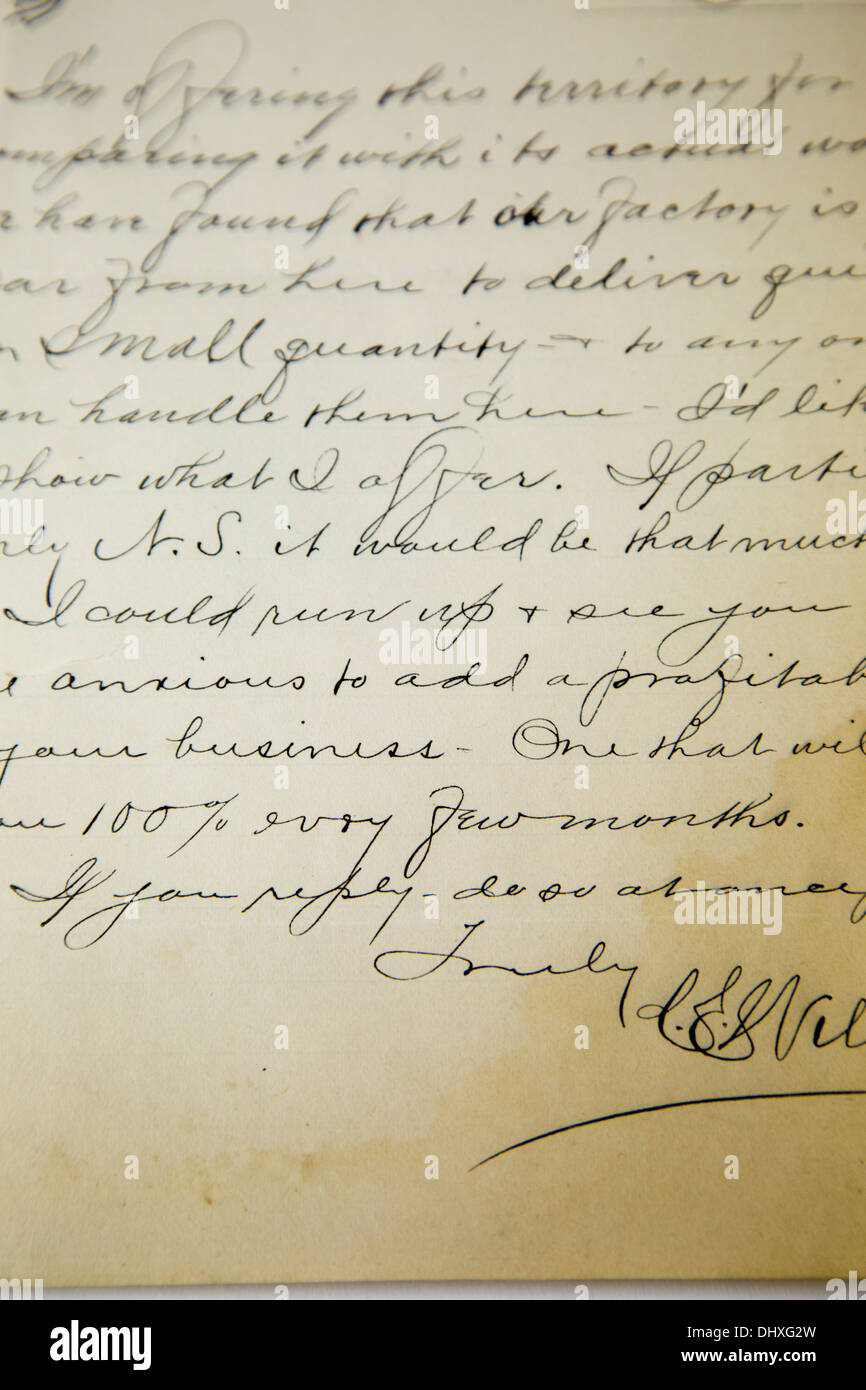 I'm offering this territory for
omparing it with its actual wo
have found that our factory is
ar from here to deliver que
n small quantity - + to any on
an handle them here - I'd lik
show what I offer. If parti
rly N.S. it would be that much
I could run up + see you
e anxious to add a profitab
your business - One that wil
ou 100% evry few months.
If you reply - do so at once
Truly
alamy stock photo
DHXG2W
www.alamy.com